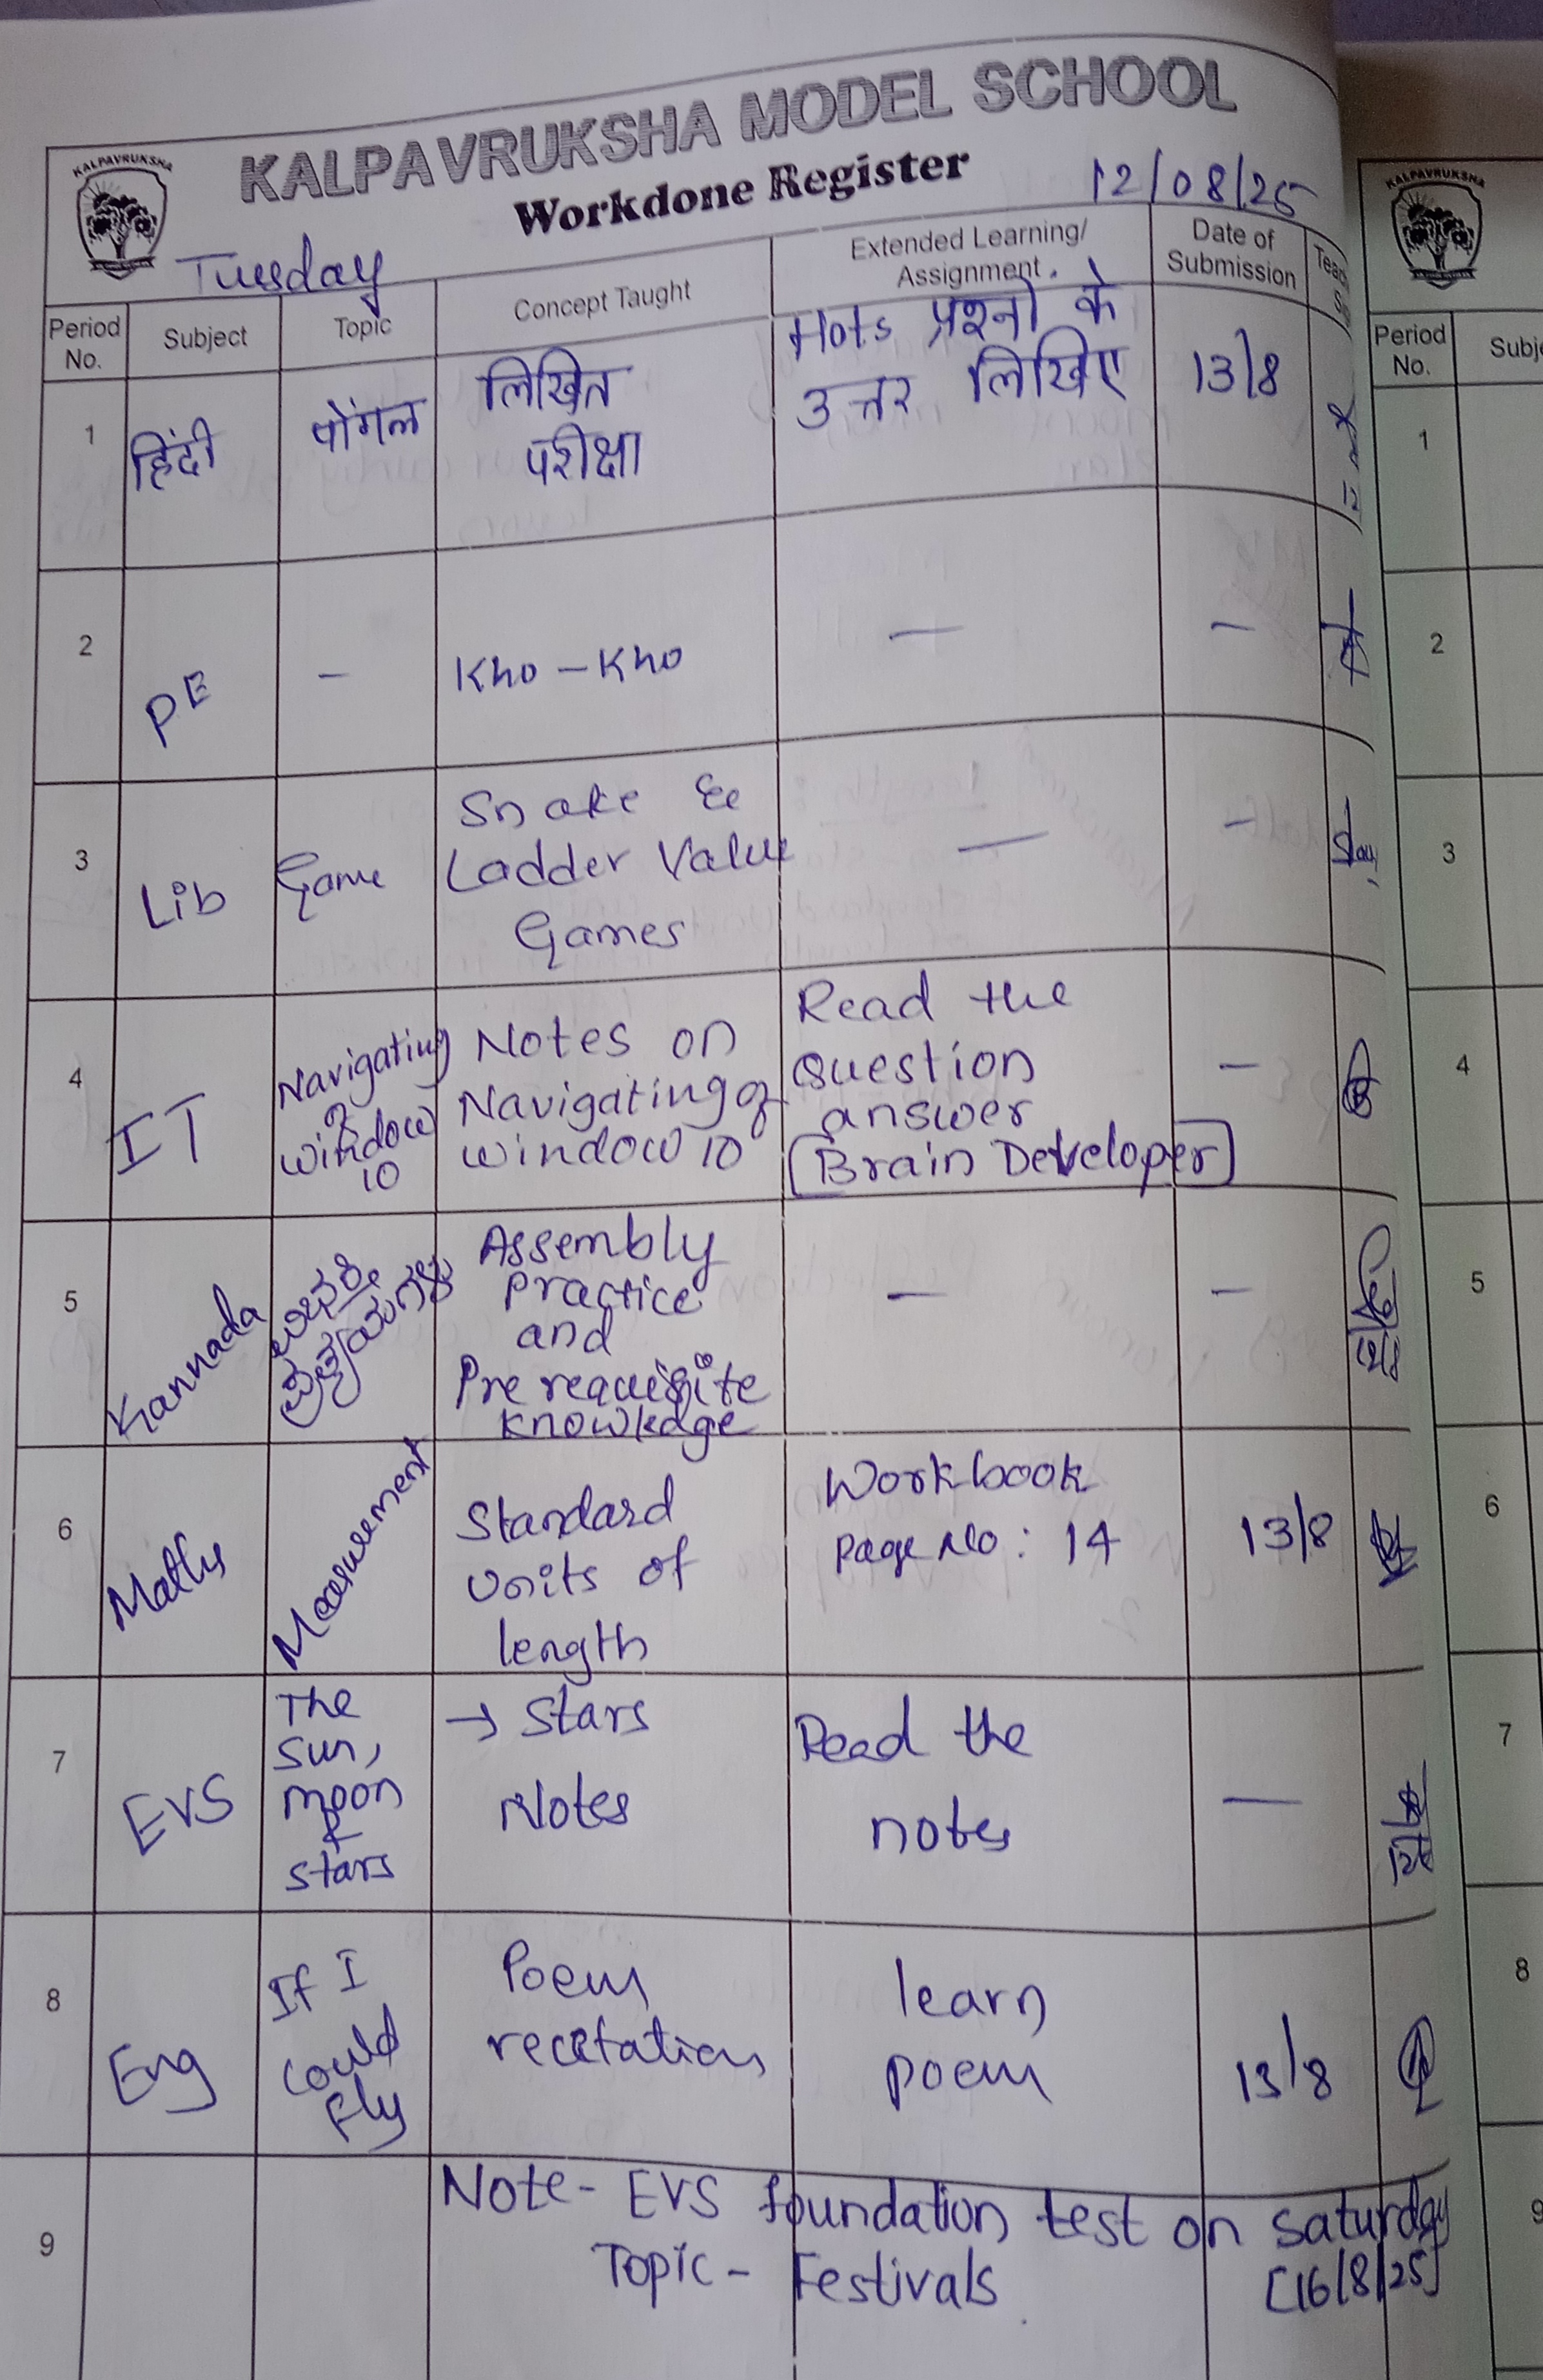 KALPAVRUKSHA MODEL SCHOOL
KALPAVRUKSHA
Workdone Register
12/08/25
Tuesday
Period No.
Subject
Topic
Concept Taught
Extended Learning/
Assignment
Date of
Submission
1
हिंदी
पोंगल
लिखित
परीक्षा
Hots प्रश्नो के
उत्तर लिखिए
13/8
2
PE
-
Kho-Kho
-
-
3
Lib
Game
Snake &
Ladder Value
Games
-
-
4
IT
Navigating
of
window
10
Notes on
Navigating of
window 10
Read the
Question
answer
[Brain Developer]
-
5
Kannada
Assembly
Practice
and
Pre requisite
knowledge
-
-
6
Maths
Measurement
Standard
Units of
length
Workbook
Page No: 14
13/8
7
EVS
The
sun,
moon
&
stars
→ Stars
Notes
Read the
notes
-
8
Eng
If I
could
fly
Poem
recetation
learn
poem
13/8
9
Note- EVS foundation test on saturday
Topic - Festivals [16/8/25]
KALPAVRUKSHA
Period
No.
1
2
3
4
5
6
7
8
9